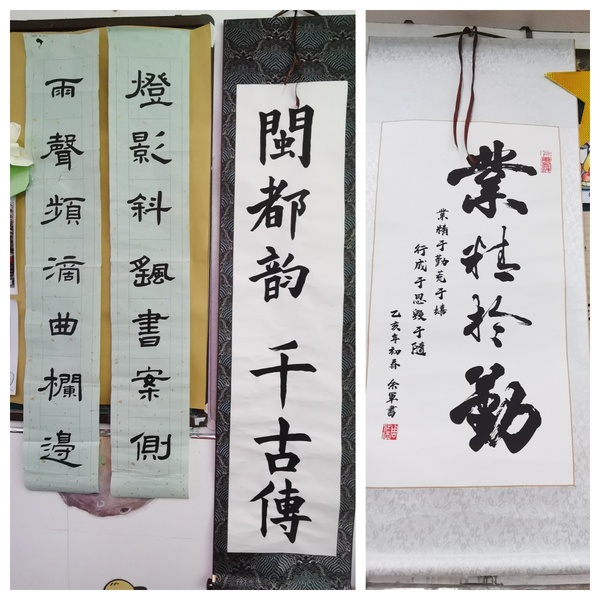 燈影斜颻書案側
雨聲頻滴曲欄邊
閩都韵 千古傳
業精扵勤
業精于勤荒于嬉
行成于思毀于隨
乙亥年初春 余軍書